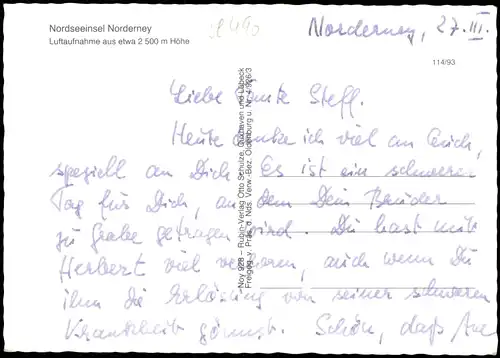 Nordseeinsel Norderney
Luftaufnahme aus etwa 2 500 m Höhe
Norderney, 27.III.
114/93
Liebe Tante Steff.
Heute denke ich viel an Euch,
speziell an Dich. Es ist ein schwerer
Tag für Dich, an dem Dein Bruder
zu Grabe getragen wird. Du hast mit
Herbert viel verloren, auch wenn Du
ihm die Erlösung von seiner schweren
Krankheit gönnst. Schön, daß Ane
Noy 928 – Rubin-Verlag Otto Schulze, Cuxhaven und Lübeck
Freigeg. v. Präs. d. Nds. Verw.-Bez. Oldenburg u. Nr.